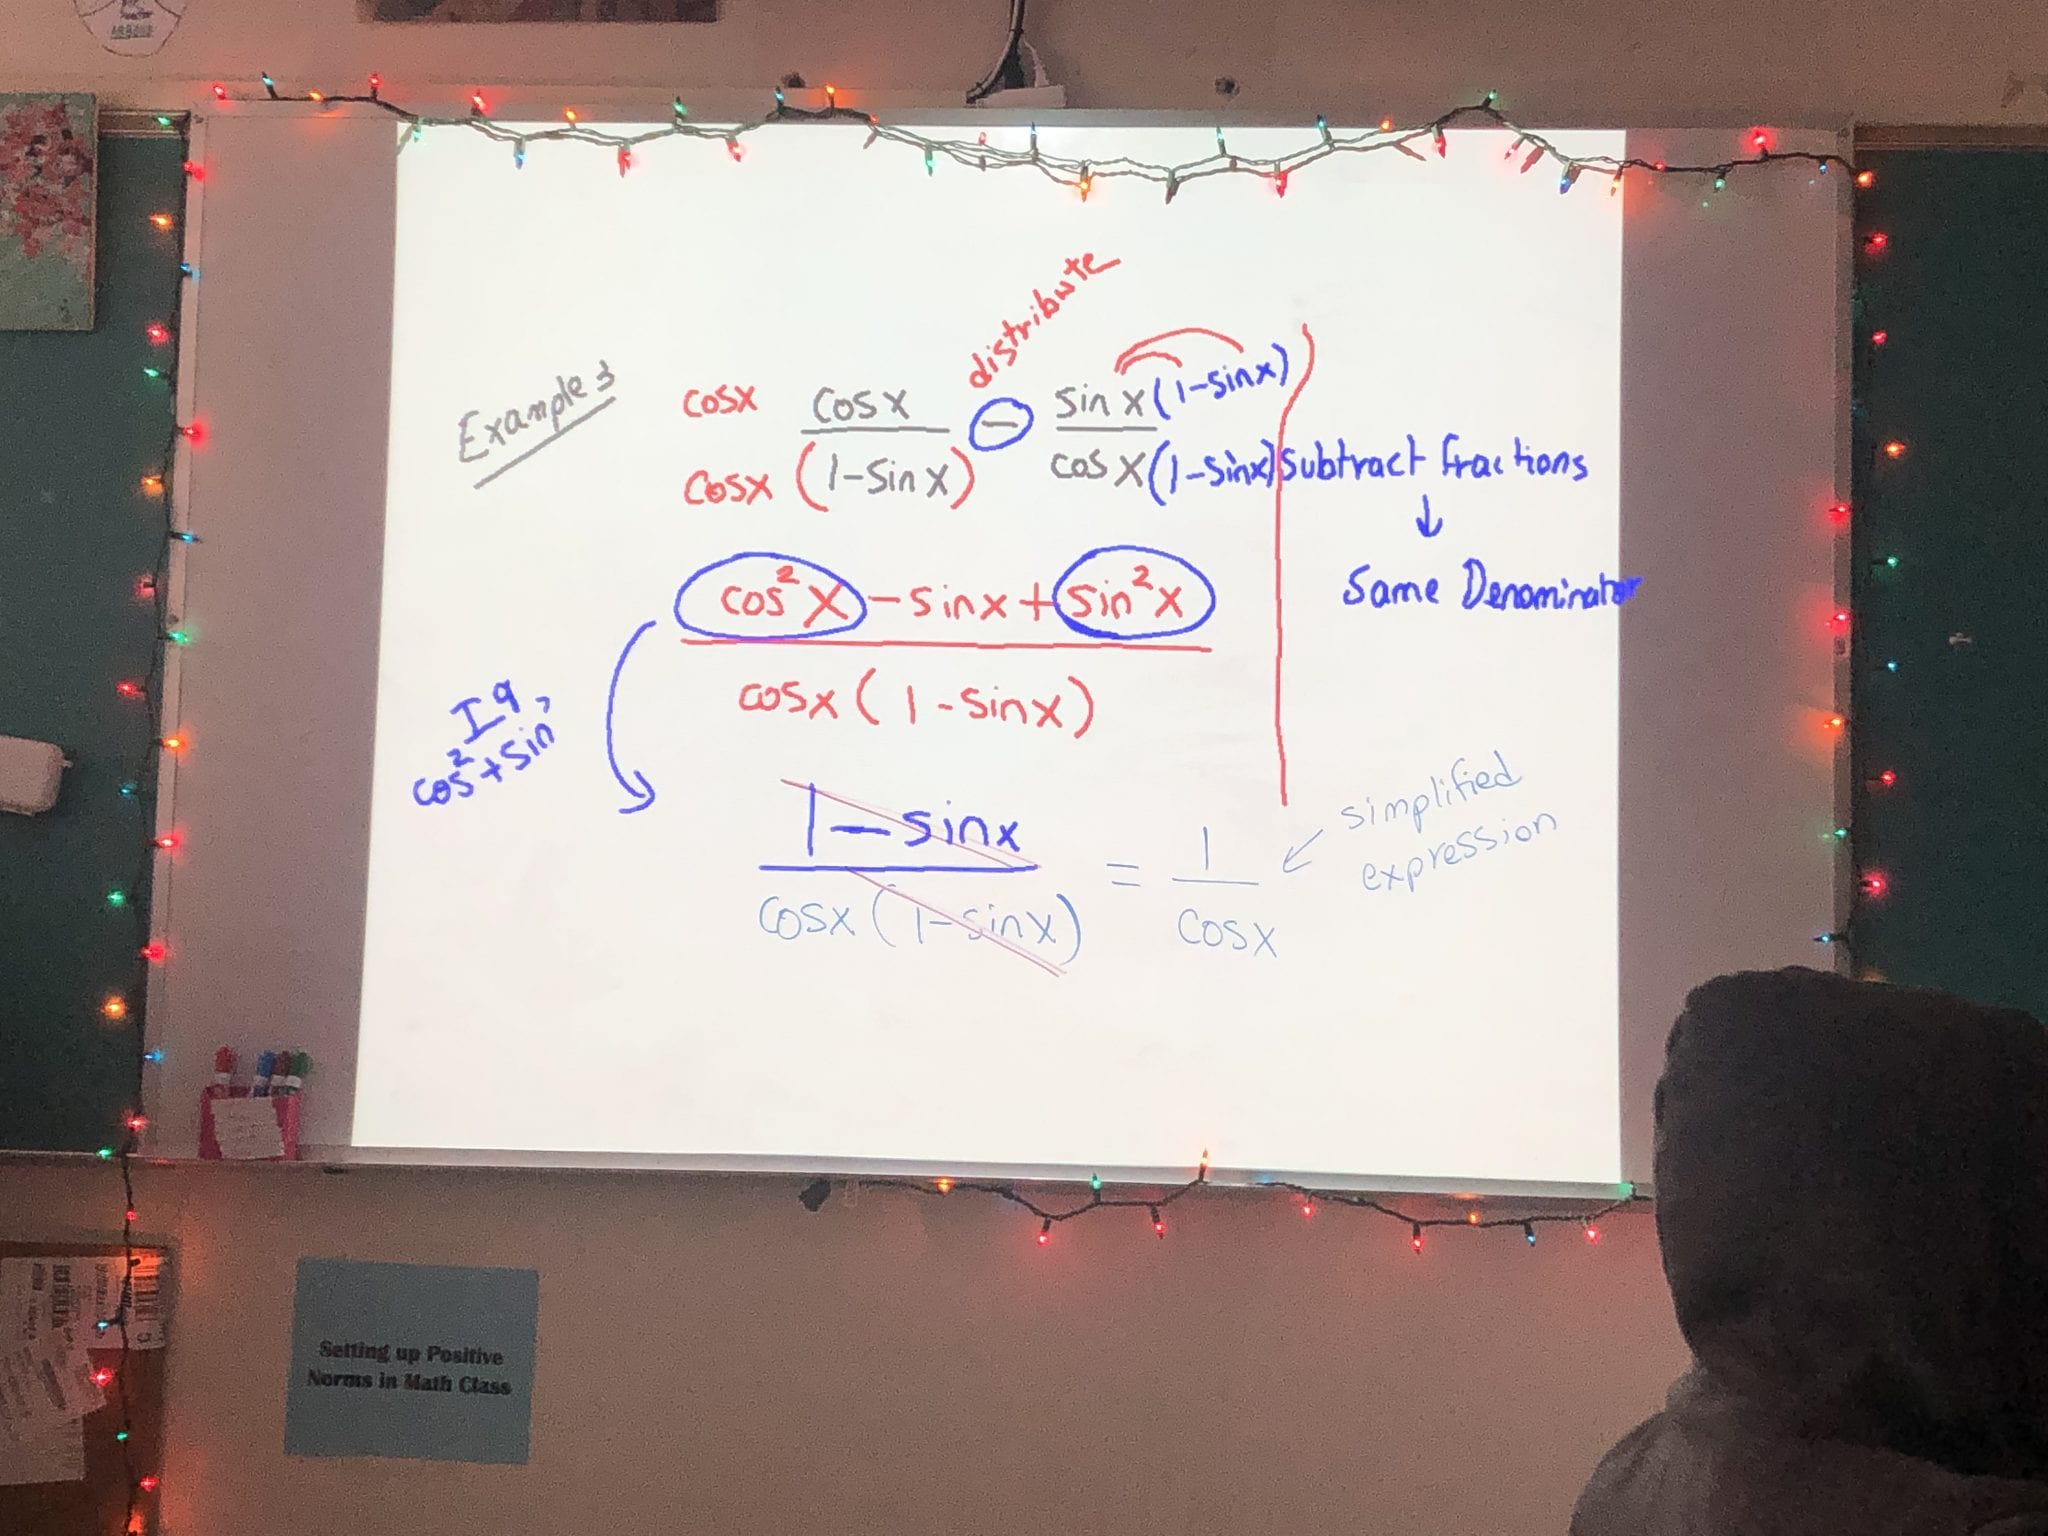 distribute
Example 3
cosx cosx − sinx(1-sinx)
cosx (1-sinx) cosx(1-sinx)
subtract fractions
↓
Same Denominator
cos²x - sinx + sin²x
cosx (1-sinx)
cos²+sin
1-sinx = 1
cosx (1-sinx) cosx
simplified
expression
Setting up Positive
Norms in Math Class